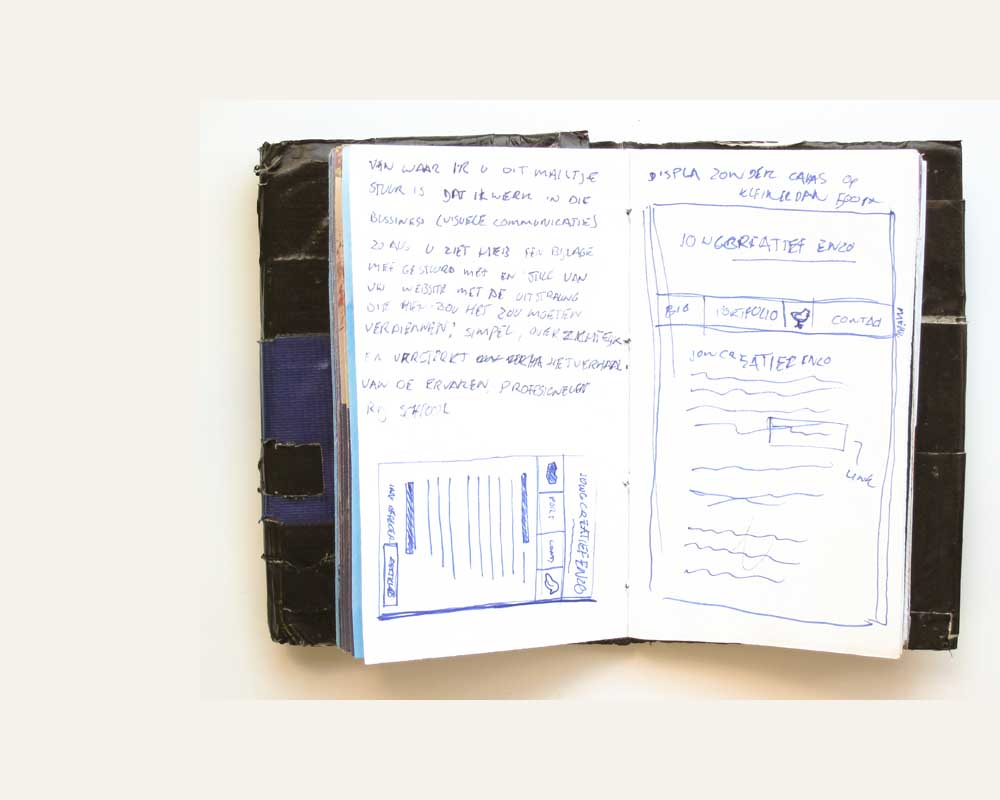 VAN WAAR IK U DIT MAILTJE
STUUR IS DAT IK WERK IN DIE
BUSSINESS (VISUELE COMMUNICATIES)
ZO ALS U ZIET HEB EEN BIJLAGE
MEE GESTUURD MET EN VAN
UW WEBSITE MET DE UITSTRALING
DIE HET ZOU HET ZOU MOETEN
VERDIENNEN! SIMPEL, OVERZICHTELIJK
EN VERSTERKT HET VERHAAL
VAN DE ERVAREN PROFESIONELEN
RIJ SCHOOL
JONG CREATIEF ENZO
PORT
CONT
DISPLA ZONDER CANVAS OP
KLEINER DAN 500PX
JONGCREATIEF ENZO
BIO
PORTFOLIO
CONTACT
MENU
JONGCREATIEF ENZO
LINK